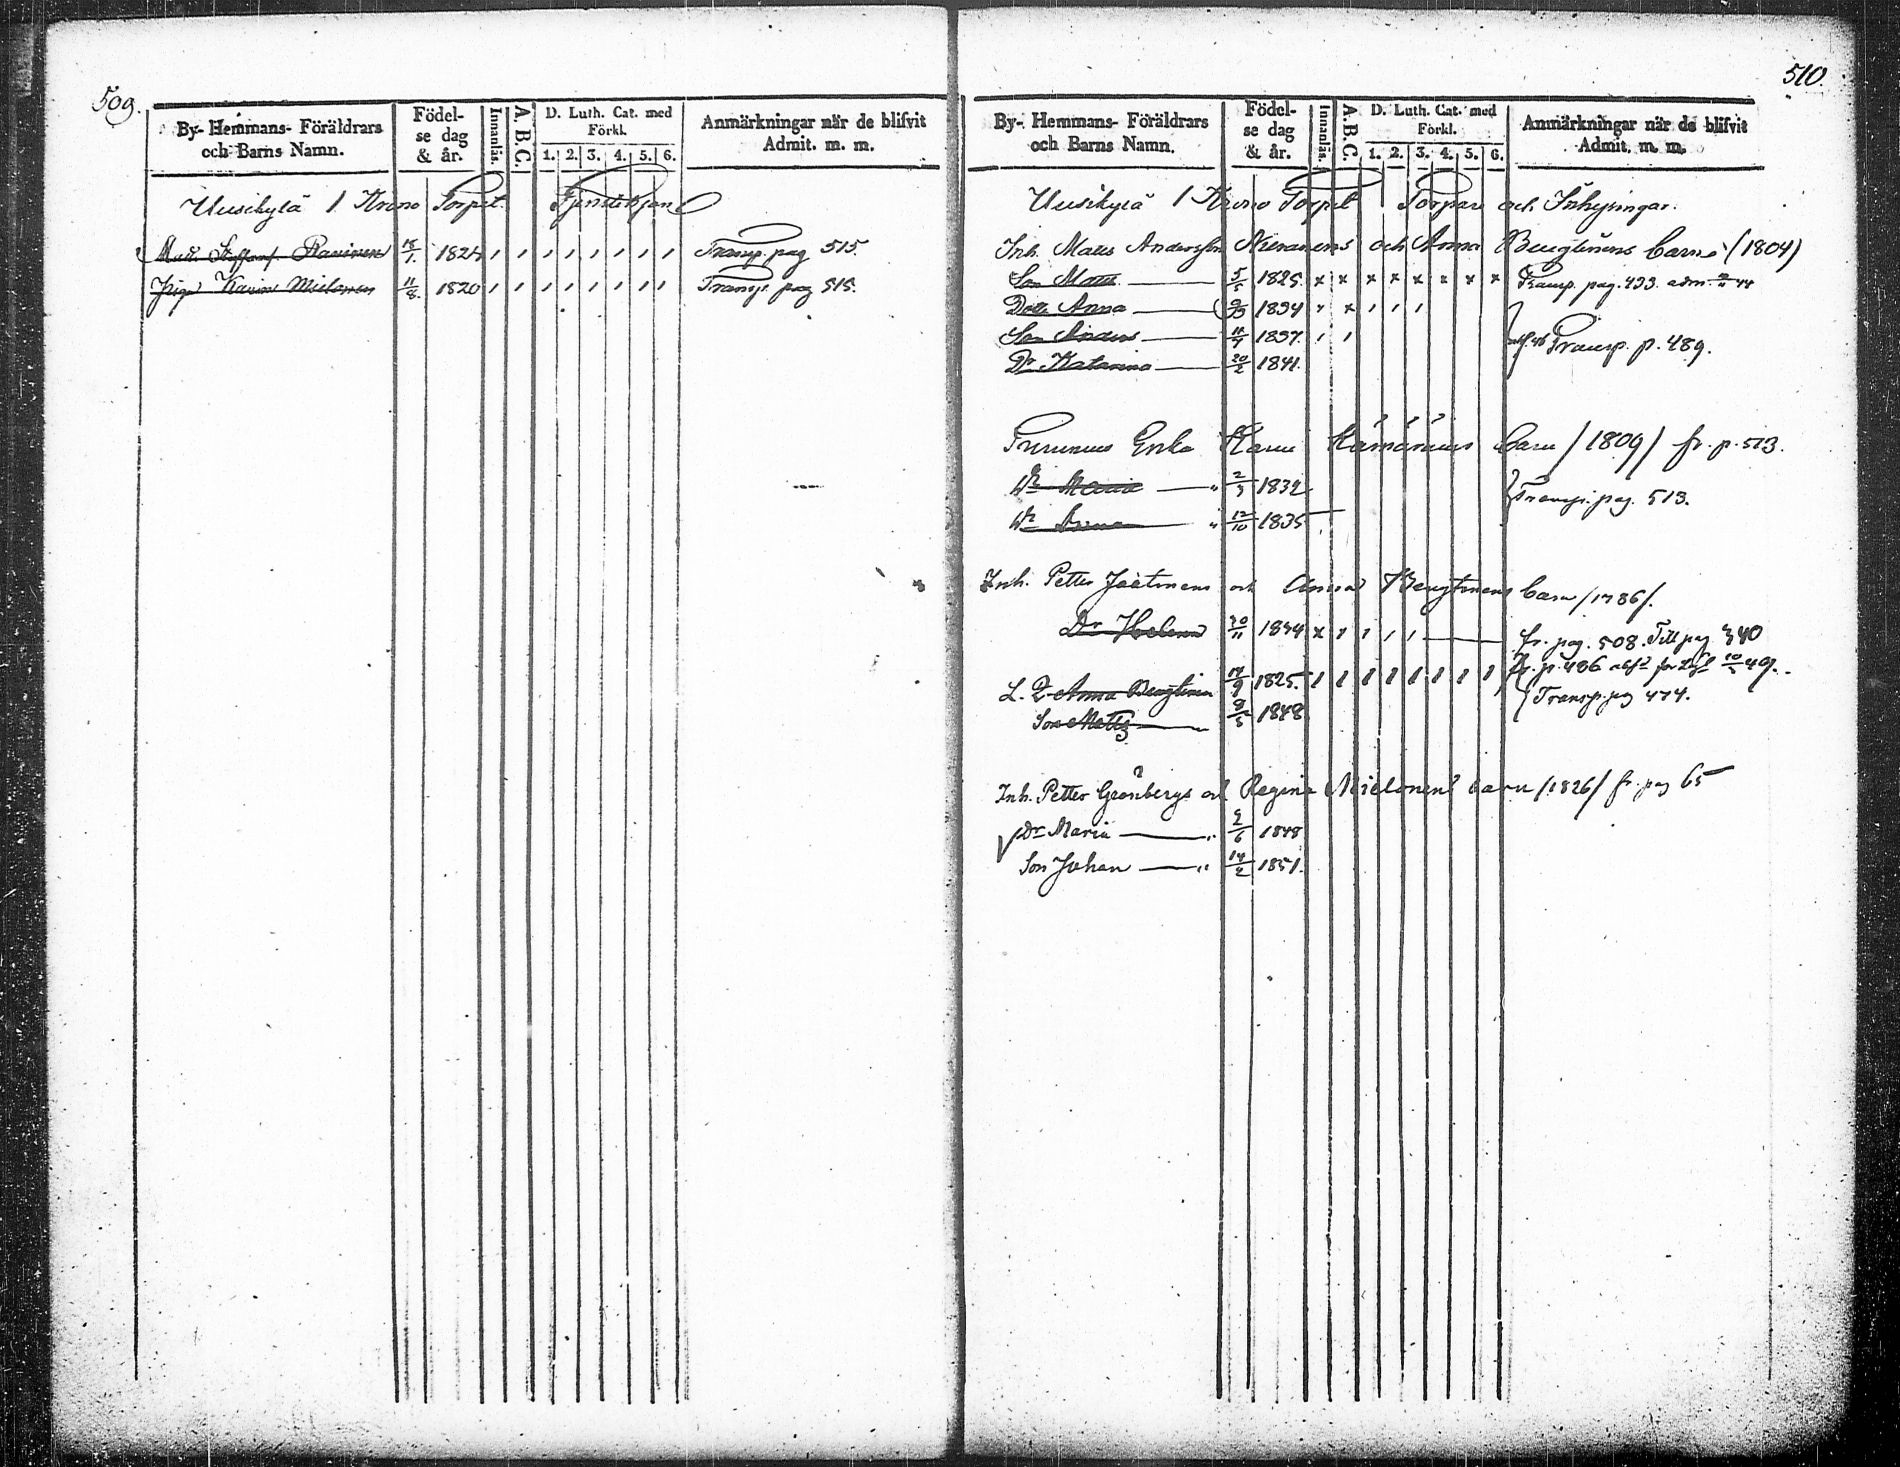 509.
By- Hemmans- Föräldrars och Barns Namn.
Födelse dag & år.
Innanläs.
A. B. C.
D. Luth. Cat. med Förkl.
1. 2. 3. 4. 5. 6.
Anmärkningar när de blifvit Admit. m. m.
Uusikylä 1 Krono Torpet
Raninen 18/1. 1824 Transp. pag 515.
Karin Mielonen 11/8. 1820 Transp. pag 515.
510.
By- Hemmans- Föräldrars och Barns Namn.
Födelse dag & år.
Innanläs.
A. B. C.
D. Luth. Cat. med Förkl.
1. 2. 3. 4. 5. 6.
Anmärkningar när de blifvit Admit. m. m.
Uusikylä 1 Krono Torpet Torpare och Inhysingar.
Inh. Matts Andersson och Anna Bengtinens barn (1804)
Son Matts 5/5 1825 x x x x x x x x Transp. pag. 433. adm.
Dott. Anna 1834
Son Anders 11/4 1837. Transp. p. 489.
Dr Katarina 20/2 1841.
Enka Karin barn /1809/ fr. p. 513.
Dr Maria " 2/3 1832 Transp. pag. 513.
Dr Anna " 12/10 1835
Inh. Petter Jäätinens och Anna Bengtinens barn /1786/.
Dr Helena 30/11 1834 x fr. pag. 508. Till pag 340
L. D. Anna Bengtinen 17/9 1825. fr. p. 486 49.
Son Matts 8/5 1848 Transp. pag 474.
Inh. Petter Grönbergs och Regina Mielonens barn /1826/ fr. pag 65
Dr Maria " 2/6 1848
Son Johan " 14/2 1851.